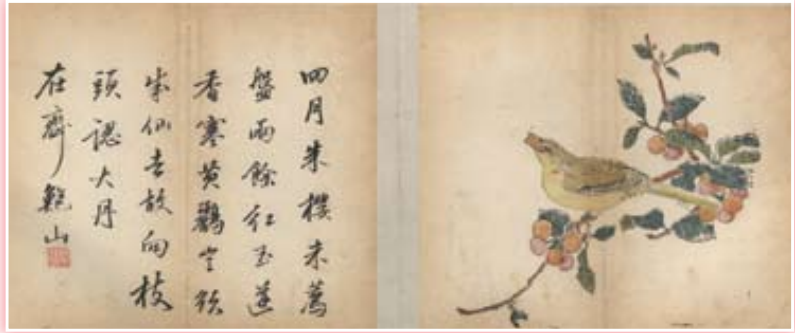 四月朱櫻未薦
盤雨餘紅玉迸
香寒黄鸝定欲
成仙去故向枝
頭認大丹
在齊鮑山